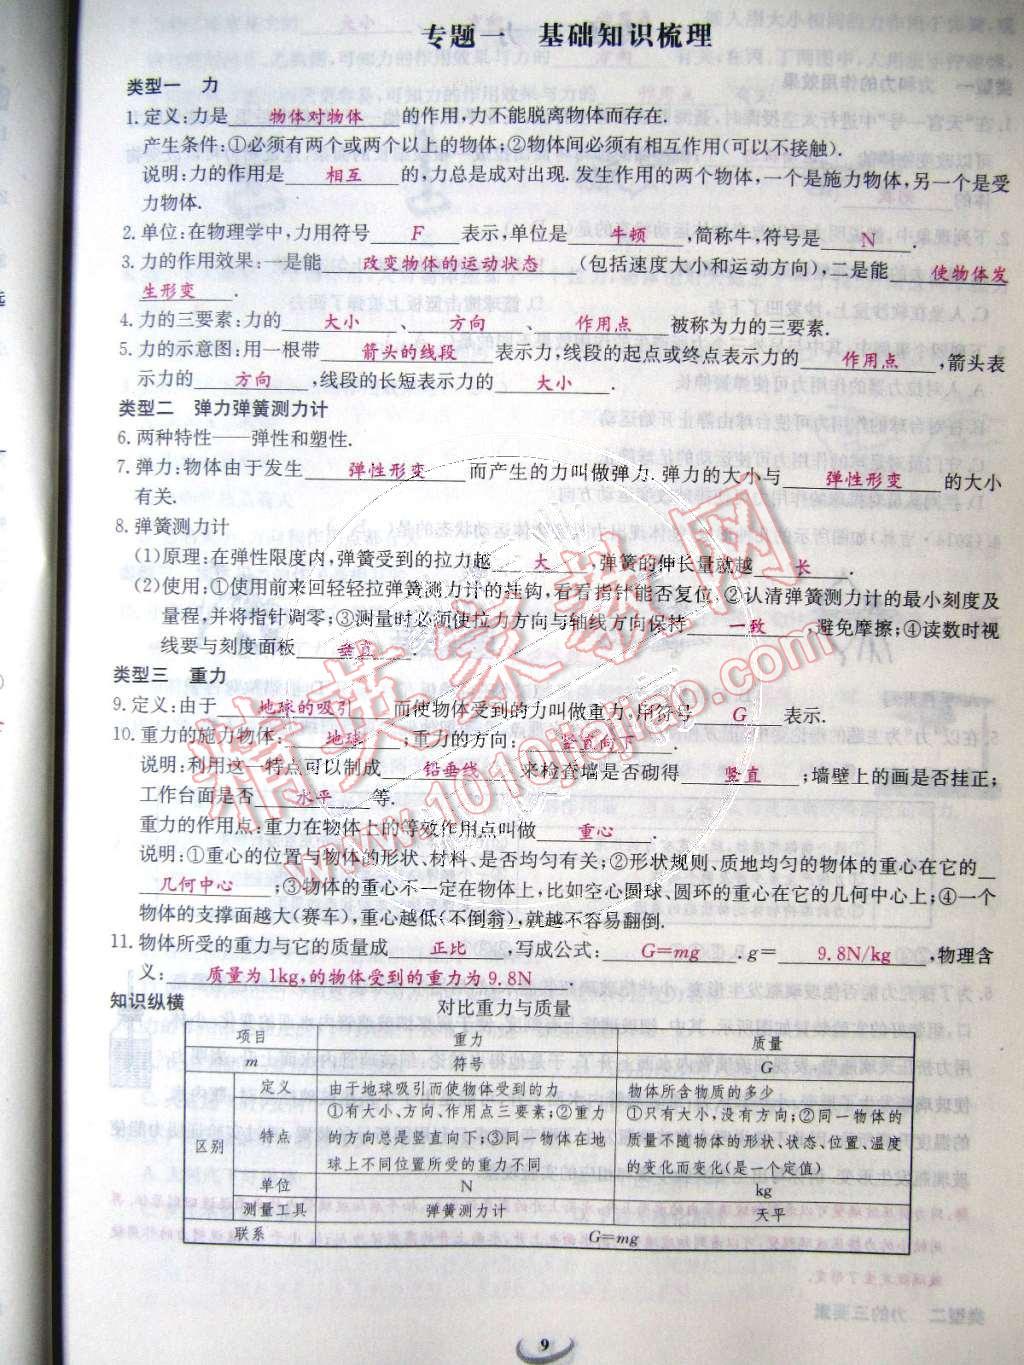 专题一 基础知识梳理
类型一 力
1. 定义:力是 物体对物体 的作用,力不能脱离物体而存在.
产生条件:①必须有两个或两个以上的物体;②物体间必须有相互作用(可以不接触).
说明:力的作用是 相互 的,力总是成对出现.发生作用的两个物体,一个是施力物体,另一个是受
力物体.
2. 单位:在物理学中,力用符号 F 表示,单位是 牛顿 ,简称牛,符号是 N .
3. 力的作用效果:一是能 改变物体的运动状态 (包括速度大小和运动方向),二是能 使物体发
生形变 .
4. 力的三要素:力的 大小 、 方向 、 作用点 被称为力的三要素.
5. 力的示意图:用一根带 箭头的线段 表示力,线段的起点或终点表示力的 作用点 ,箭头表
示力的 方向 ,线段的长短表示力的 大小 .
类型二 弹力弹簧测力计
6. 两种特性——弹性和塑性.
7. 弹力:物体由于发生 弹性形变 而产生的力叫做弹力.弹力的大小与 弹性形变 的大小
有关.
8. 弹簧测力计
(1)原理:在弹性限度内,弹簧受到的拉力越 大 ,弹簧的伸长量就越 长 .
(2)使用:①使用前来回轻轻拉弹簧测力计的挂钩,看看指针能否复位.②认清弹簧测力计的最小刻度及
量程,并将指针调零;③测量时必须使拉力方向与轴线方向保持 一致 ,避免摩擦;④读数时视
线要与刻度面板 垂直 .
类型三 重力
9. 定义:由于 地球的吸引 而使物体受到的力叫做重力,用符号 G 表示.
10. 重力的施力物体: 地球 ;重力的方向: 竖直向下 .
说明:利用这一特点可以制成 铅垂线 来检查墙是否砌得 竖直 ;墙壁上的画是否挂正;
工作台面是否 水平 等.
重力的作用点:重力在物体上的等效作用点叫做 重心 .
说明:①重心的位置与物体的形状、材料、是否均匀有关;②形状规则、质地均匀的物体的重心在它的
几何中心 ;③物体的重心不一定在物体上,比如空心圆球、圆环的重心在它的几何中心上;④一个
物体的支撑面越大(赛车),重心越低(不倒翁),就越不容易翻倒.
11. 物体所受的重力与它的质量成 正比 ,写成公式: G=mg . g= 9.8N/kg ,物理含
义: 质量为1kg,的物体受到的重力为9.8N
知识纵横 对比重力与质量
项目 重力 质量
m 符号 G
定义 由于地球吸引而使物体受到的力 物体所含物质的多少
①有大小、方向、作用点三要素;②重力 ①只有大小,没有方向;②同一物体的
区别 特点 的方向总是竖直向下;③同一物体在地 质量不随物体的形状、状态、位置、温度
球上不同位置所受的重力不同 的变化而变化(是一个定值)
单位 N kg
测量工具 弹簧测力计 天平
联系 G=mg
9
精英家教网
www.1010jiajiao.com